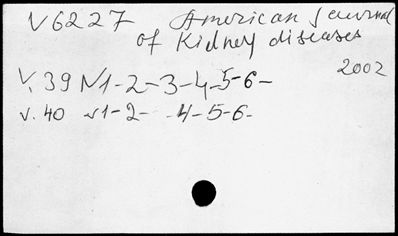 V6227 American Journal
of Kidney diseases
2002
V. 39 N1-2-3-4-5-6-
v. 40 N1-2- -4-5-6-